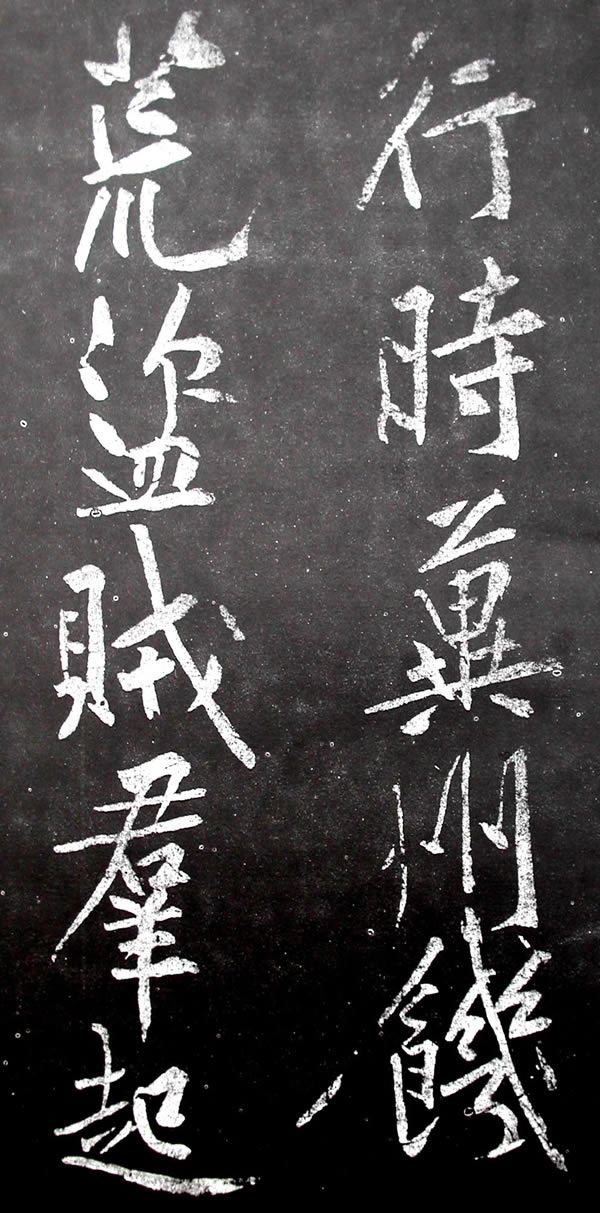 行時冀州饑
荒盜賊羣起